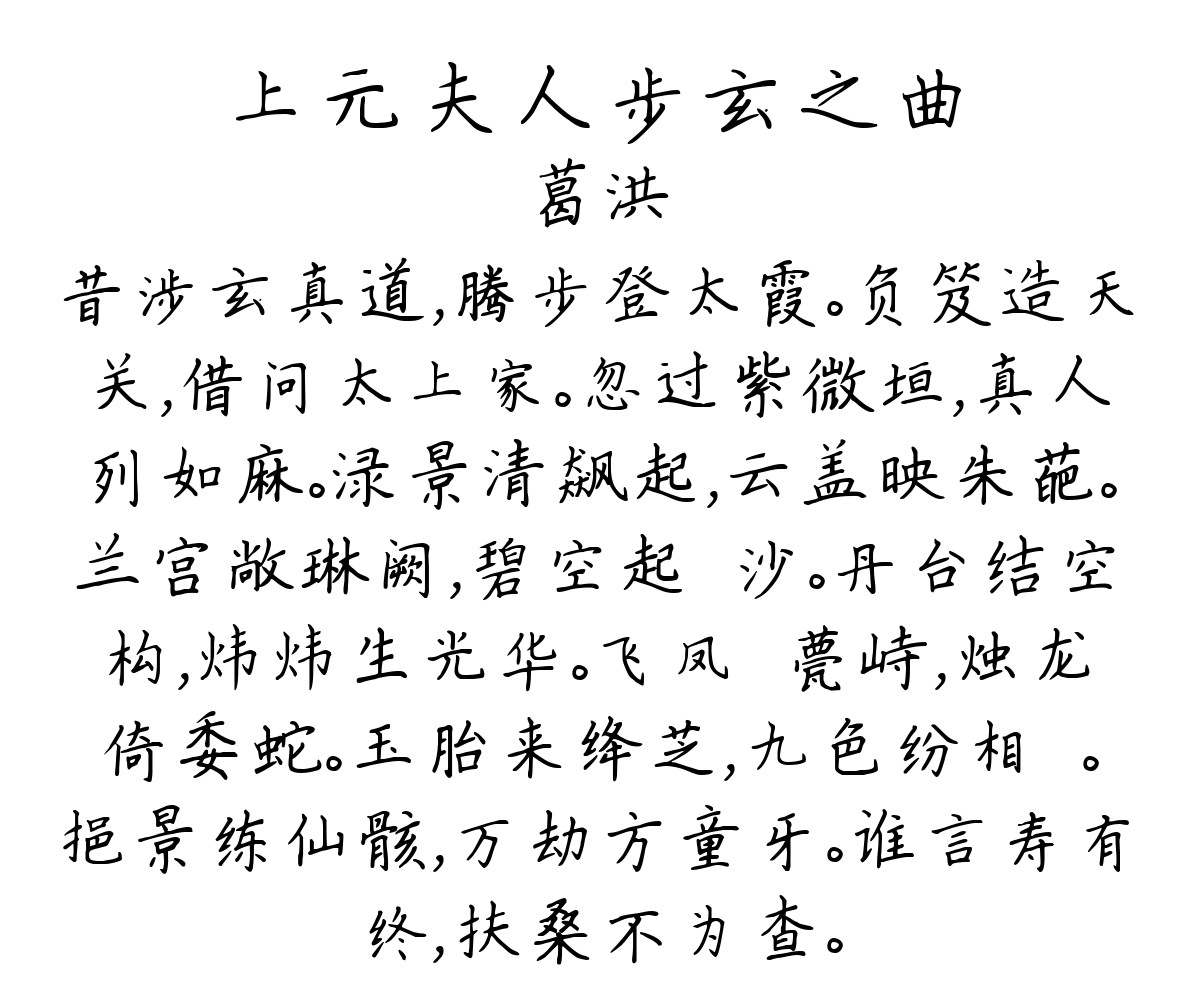 上元夫人步玄之曲
葛洪
昔涉玄真道,腾步登太霞。负笈造天
关,借问太上家。忽过紫微垣,真人
列如麻。渌景清飙起,云盖映朱葩。
兰宫敞琳阙,碧空起 沙。丹台结空
构,炜炜生光华。飞凤 甍峙,烛龙
倚委蛇。玉胎来绛芝,九色纷相 。
挹景练仙骸,万劫方童牙。谁言寿有
终,扶桑不为查。